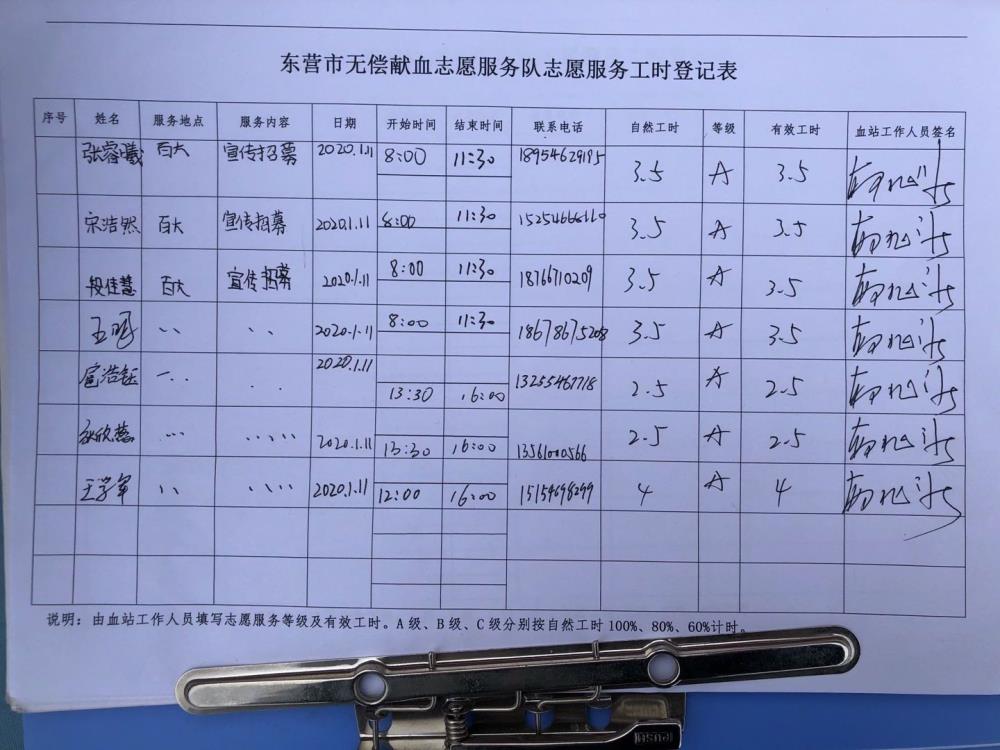 东营市无偿献血志愿服务队志愿服务工时登记表
序号 姓名 服务地点 服务内容 日期 开始时间 结束时间 联系电话 自然工时 等级 有效工时 血站工作人员签名
张睿曦 百大 宣传招募 2020.1.11 8:00 11:30 18954629195 3.5 A 3.5
宋浩然 百大 宣传招募 2020.1.11 8:00 11:30 3.5 A 3.5
段佳慧 百大 宣传招募 2020.1.11 8:00 11:30 18766710209 3.5 A 3.5
2020.1.11 8:00 11:30 18678675208 3.5 A 3.5
2020.1.11 13:30 16:00 13255467718 2.5 A 2.5
2020.1.11 13:30 16:00 13561000566 2.5 A 2.5
王学军 2020.1.11 12:00 16:00 15154698299 4 A 4
说明：由血站工作人员填写志愿服务等级及有效工时。A级、B级、C级分别按自然工时100%、80%、60%计时。
PUSH